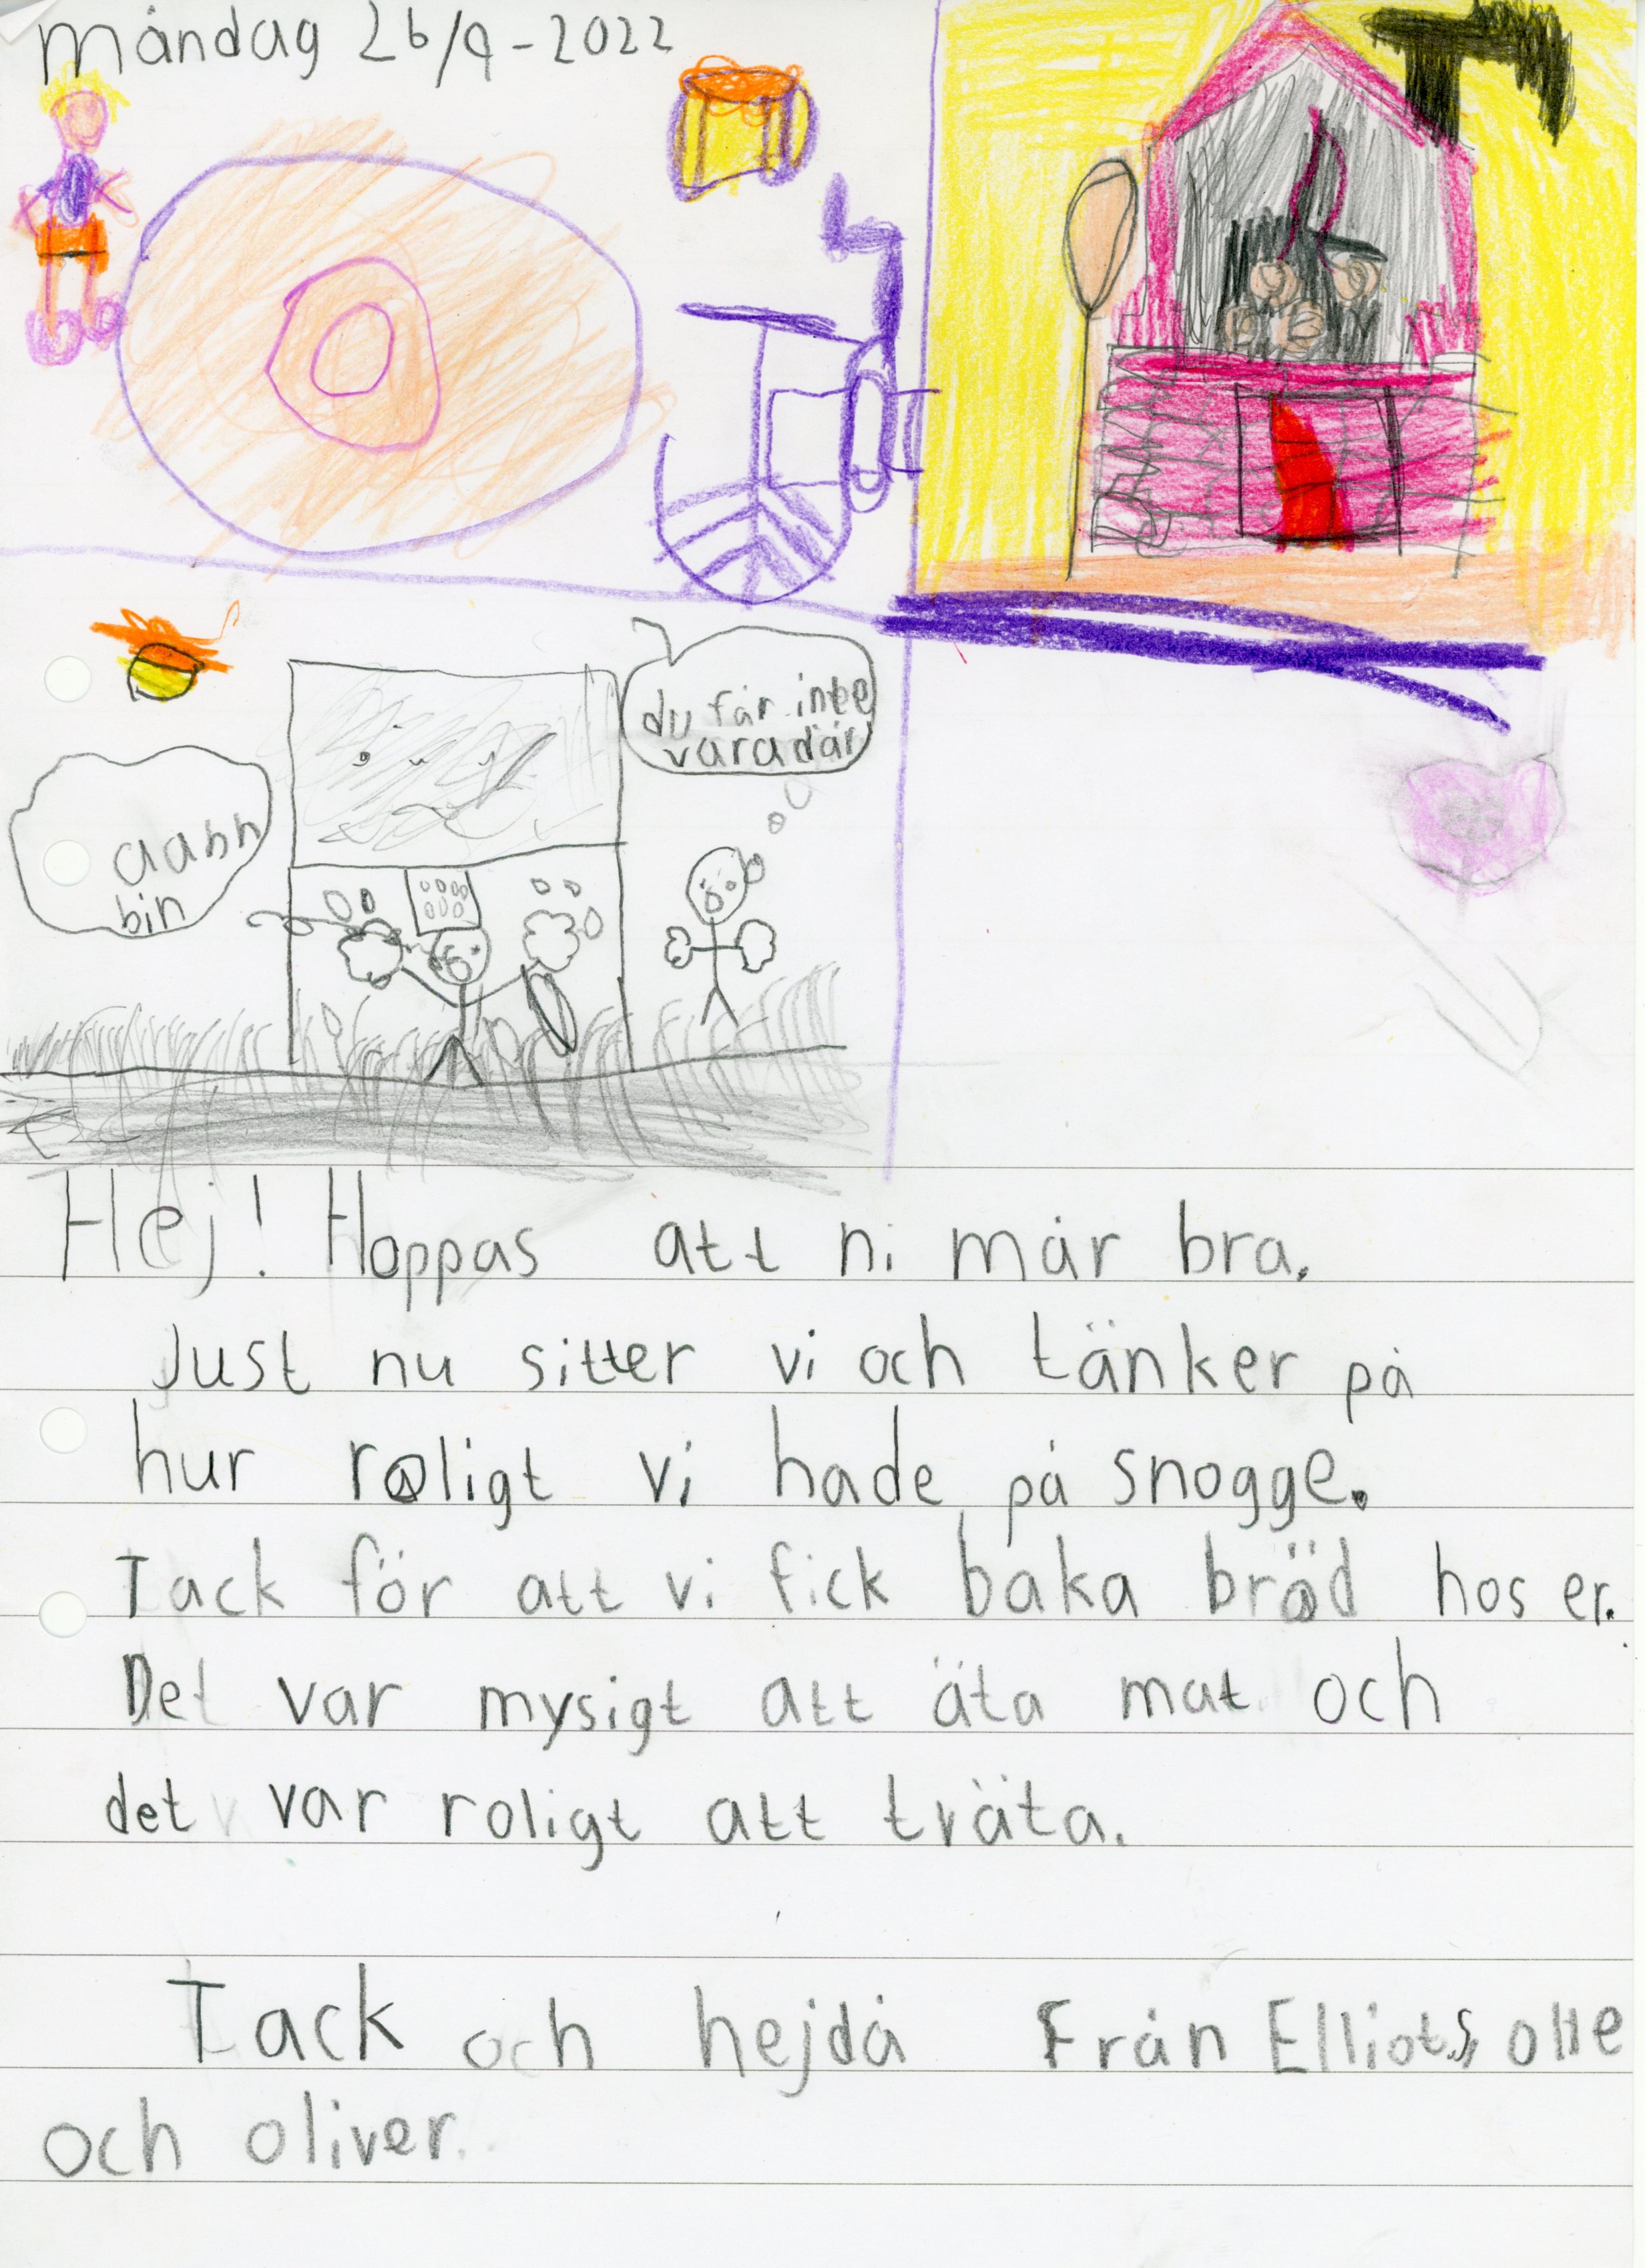 måndag 26/9-2022
du får inte
vara där
bin
Hej! Hoppas att ni mår bra.
Just nu sitter vi och tänker på
hur roligt vi hade på snogge.
Tack för att vi fick baka bröd hos er.
Det var mysigt att äta mat och
det var roligt att tväta.
Tack och hejdå Från Elliot, olle
och oliver.